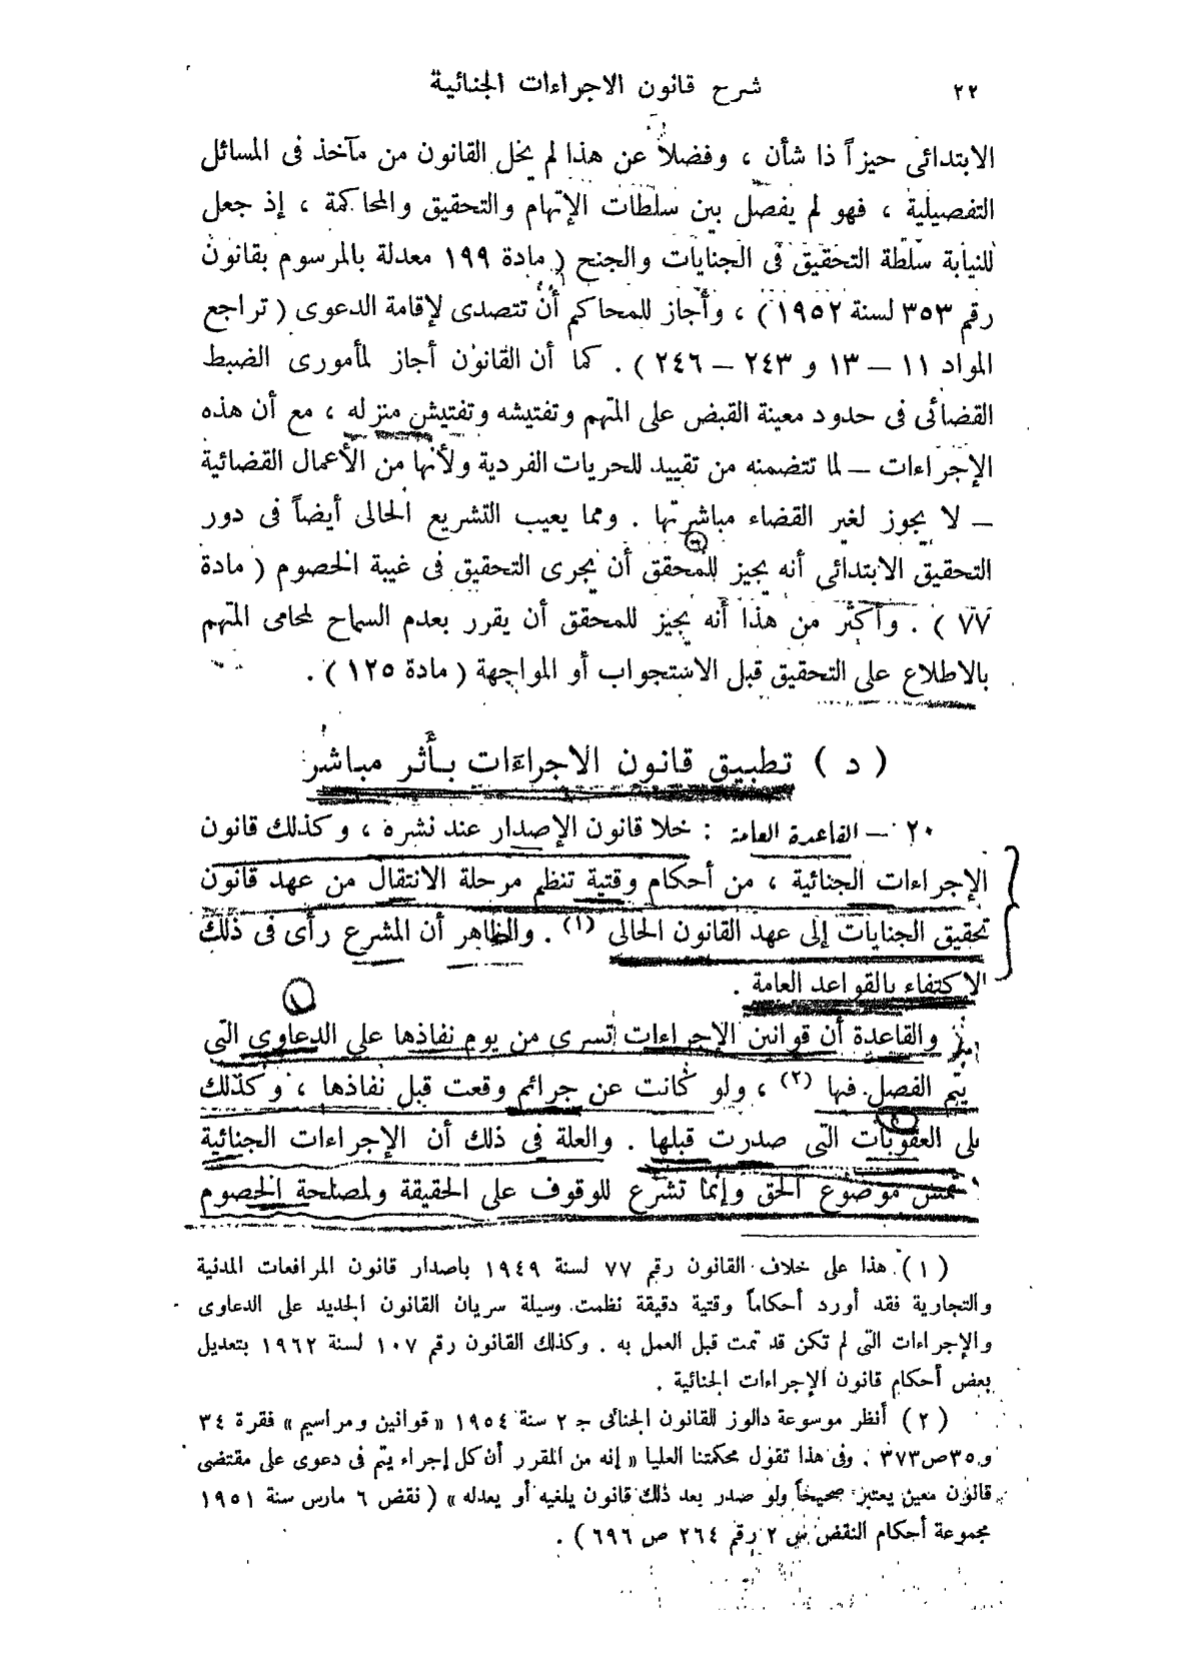 ٢٢
شرح قانون الاجراءات الجنائية
الابتدائى حيزاً ذا شأن ، وفضلاً عن هذا لم يخل القانون من مآخذ فى المسائل
التفصيلية ، فهو لم يفصل بين سلطات الإتهام والتحقيق والمحاكمة ، إذ جعل
للنيابة سلطة التحقيق فى الجنايات والجنح ( مادة ١٩٩ معدلة بالمرسوم بقانون
رقم ٣٥٣ لسنة ١٩٥٢ ) ، وأجاز للمحاكم أن تتصدى لإقامة الدعوى ( تراجع
المواد ١١ – ١٣ و ٢٤٣ – ٢٤٦ ) . كما أن القانون أجاز لمأمورى الضبط
القضائى فى حدود معينة القبض على المتهم وتفتيشه وتفتيش منزله ، مع أن هذه
الإجراءات – لما تتضمنه من تقييد للحريات الفردية ولأنها من الأعمال القضائية
– لا يجوز لغير القضاء مباشرتها . ومما يعيب التشريع الحالى أيضاً فى دور
التحقيق الابتدائى أنه يجيز للمحقق أن يجرى التحقيق فى غيبة الخصوم ( مادة
٧٧ ) . وأكثر من هذا أنه يجيز للمحقق أن يقرر بعدم السماح لمحامى المتهم
بالاطلاع على التحقيق قبل الاستجواب أو المواجهة ( مادة ١٢٥ ) .
( د ) تطبيق قانون الاجراءات بأثر مباشر
٢٠ – القاعدة العامة : خلا قانون الإصدار عند نشره ، وكذلك قانون
الإجراءات الجنائية ، من أحكام وقتية تنظم مرحلة الانتقال من عهد قانون
تحقيق الجنايات إلى عهد القانون الحالى (١) . والظاهر أن المشرع رأى فى ذلك
الاكتفاء بالقواعد العامة .
والقاعدة أن قوانين الإجراءات تسرى من يوم نفاذها على الدعاوى التى
يتم الفصل فيها (٢) ، ولو كانت عن جرائم وقعت قبل نفاذها ، وكذلك
على العقوبات التى صدرت قبلها . والعلة فى ذلك أن الإجراءات الجنائية
تمس موضوع الحق وإنما تشرع للوقوف على الحقيقة ولمصلحة الخصوم
( ١ ) هذا على خلاف القانون رقم ٧٧ لسنة ١٩٤٩ باصدار قانون المرافعات المدنية
والتجارية فقد أورد أحكاماً وقتية دقيقة نظمت وسيلة سريان القانون الجديد على الدعاوى
والإجراءات التى لم تكن قد تمت قبل العمل به . وكذلك القانون رقم ١٠٧ لسنة ١٩٦٢ بتعديل
بعض أحكام قانون الإجراءات الجنائية .
( ٢ ) أنظر موسوعة دالوز للقانون الجنائى ج ٢ سنة ١٩٥٤ « قوانين ومراسيم » فقرة ٣٤
و ٣٥ ص ٣٧٣ . وفى هذا تقول محكمتنا العليا « إنه من المقرر أن كل إجراء يتم فى دعوى على مقتضى
قانون معين يعتبر صحيحاً ولو صدر بعد ذلك قانون يلغيه أو يعدله » ( نقض ٦ مارس سنة ١٩٥١
مجموعة أحكام النقض س ٢ رقم ٢٦٤ ص ٦٩٦ ) .